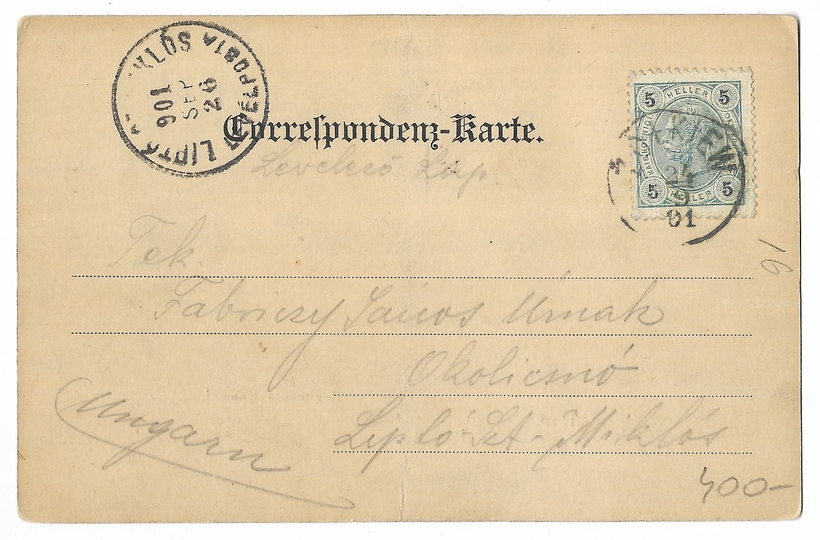 LIPTÓ SZT MIKLÓS
901
SEP
26
Correspondenz-Karte.
Levelező Lap.
5 HELLER 5
5 HELLER 5
24
9
01
Tek.
Fabriczy János Úrnak
Okolicsnó
Liptó-Szt-Miklós
Ungarn
16
400-